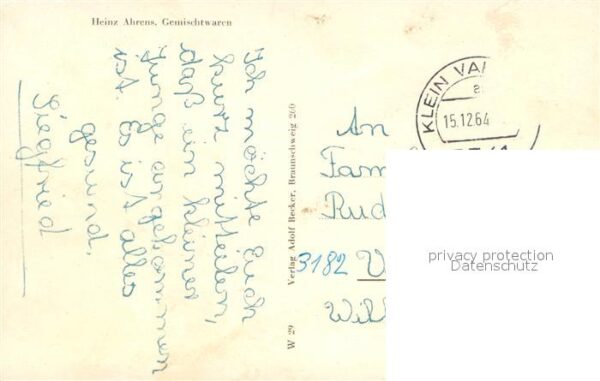 Heinz Ahrens, Gemischtwaren
Ich möchte Euch
kurz mitteilen,
daß ein kleiner
Junge angekommen
ist. Es ist alles
gesund.
Siegfried
W 29 Verlag Adolf Becker, Braunschweig 260
KLEIN VA
15.12.64
An
Fam
Rud
3182 V
Wil
privacy protection
Datenschutz